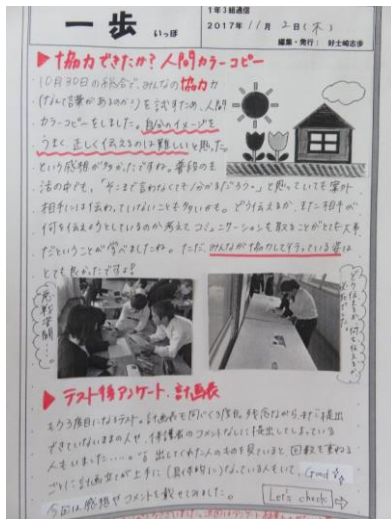 一歩
いっぽ
1年3組通信
2017年11月2日(木)
編集・発行: 好士崎志歩
▶協力できたか?人間カラーコピー
10月30日の総合で、みんなの協力力
(なんて言葉があるのか!)を試すため、人間
カラーコピーをしました。自分のイメージを
うまく、正しく伝えるのは難しいと思った。
という感想が多かったですね。普段の生
活の中でも、「そこまで言わなくても分かるだろう…」と思っていても案外
相手には伝わっていないことも多いかも。どう伝えるか、また相手が
何を伝えようとしているのか考えてコミュニケーションを取ることがとても大事
だということが学べましたね。ただ、みんなが協力して行っている姿は
とても良かったですよ!
▶テスト後アンケート・計画表
もう3度目になるテスト。計画表も同じく3度目。残念ながら、まだ提出
できていないままの人や、保護者のコメントなしに提出してしまっている
人もいました……。 出してくれた人のものを見ていると回数を重ねる
ごとに計画立てが上手に(具体的に)なっている人もいて、Good
今回は感想やコメントを載せてみました。
Let's check